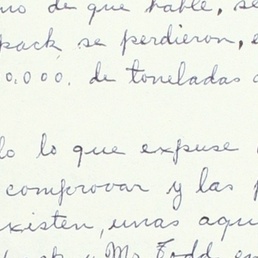 mo de que hablé, se
pack se perdieron, e
0.000. de toneladas
lo lo que expuse
comprovar y las
existen, unas aqu
y Mr Todd en